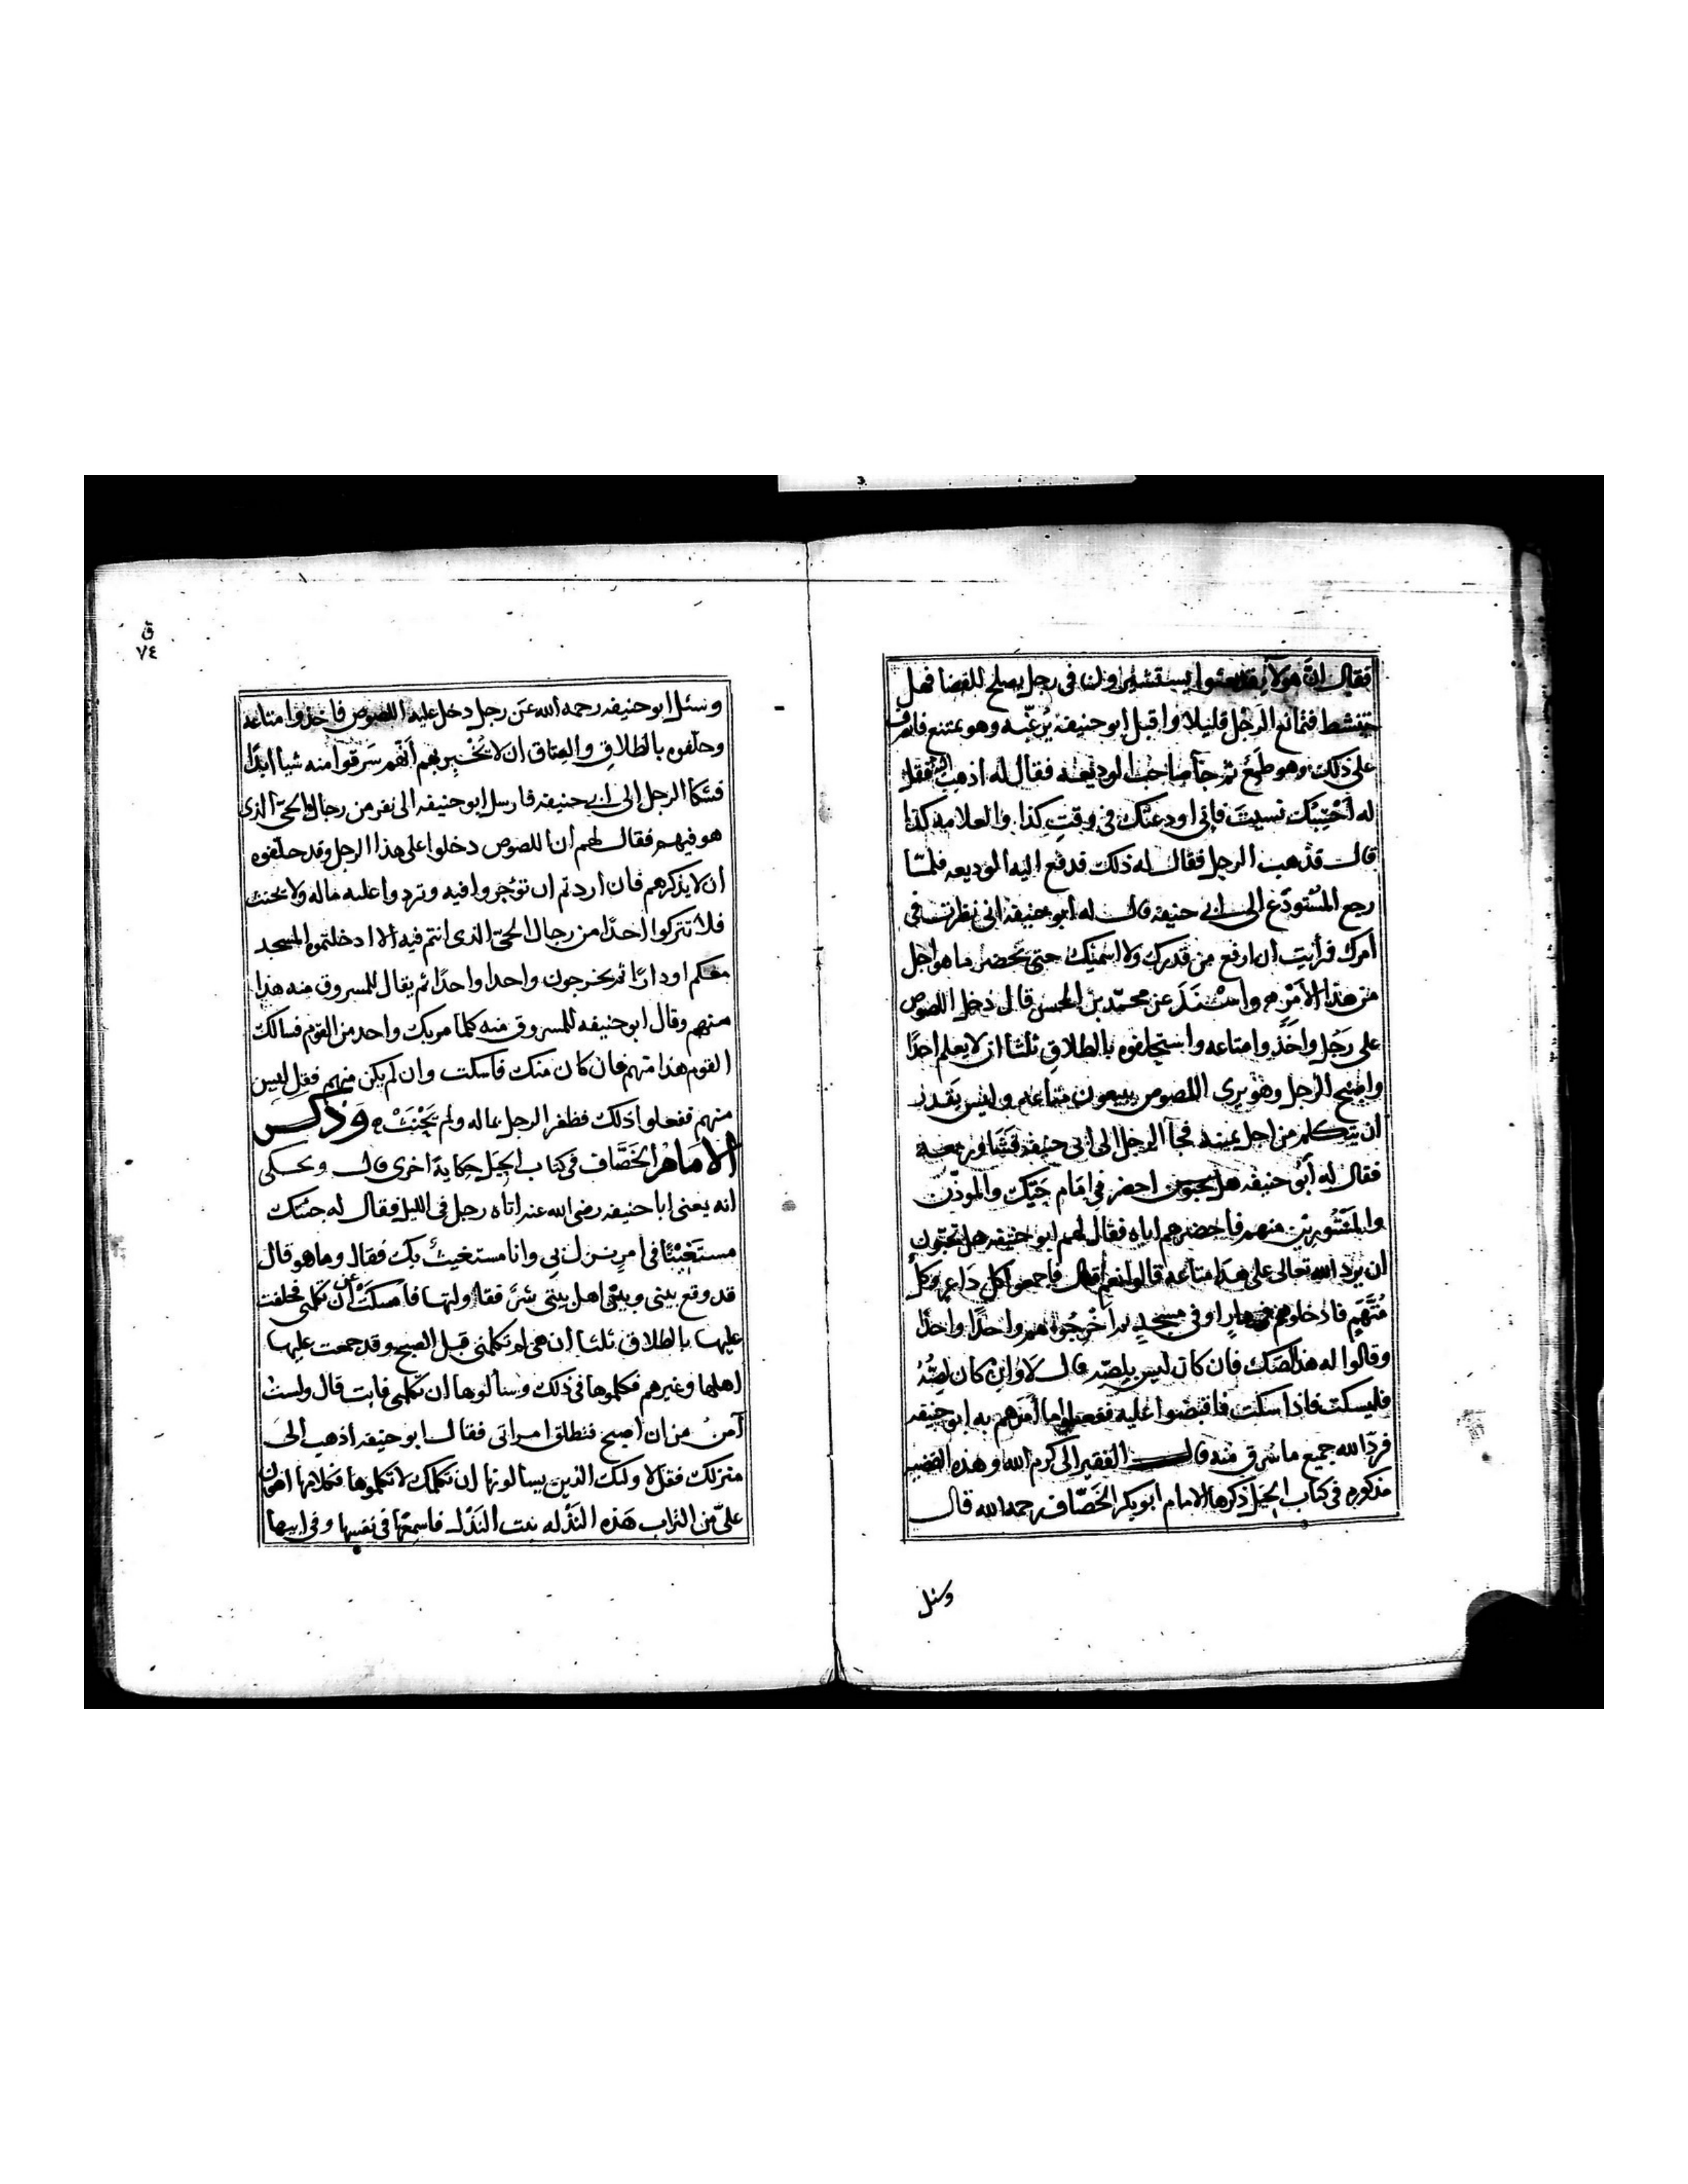 فقال ان هولاء قد بعثوا يستشيرونى فى رجل يصلح للقضا فهل
تنشط فتمانع الرجل قليلا واقبل ابو حنيفه يرغبه وهو يمتنع فانصرف
على ذلك وهو طمع ثم جأ صاحب الوديعه فقال له اذهب اليه فقل
له احسبك نسيت فانى اودعتك فى وقت كذا والعلامه كذا
قال فذهب الرجل فقال له ذلك فدفع اليه الوديعه فلمّا
رجع المُسْتودَع الى ابى حنيفه قال له ابو حنيفه انى نظرت فى
امرك فرأيت ان ارفع من قدرك ولا اسميك حتى يحضر ما هو اجل
من هذا الأمْر م واسْنَدَ عن محمّد بن الحسن قال دخل اللصوص
على رَجُل واخذوا متاعه واستحلفوه بالطلاق ثلثا ان لا يعلم احدًا
واصبح الرجل وهو يرى اللصوص يبيعون متاعه وليس يقدر
ان يتكلم من اجل يمينه فجأ الرجل الى ابى حنيفه فشاوره معه
فقال له ابو حنيفه احضر لى امام حيّك والموذّن
والمَسْتُورين منهم فاحضرهم اياه فقال لهم ابو حنيفه هل تحبّون
ان يردّ الله تعالى على هذا متاعه قالوا نعم قال فاجمعوا كل داعر وكل
مُتَّهَم فادخلوهم فى دارٍ او فى مسجدٍ ثم اخرجُوا هم واحدًا واحدًا
وقالوا له هذا لصّك فان كان ليس بلصّه قال لا وان كان لصّهُ
فليسكت فاذا سكت فاقبضوا عليه ففعلوا ما أمرهم به ابو حنيفه
فردّ الله جميع ما سُرق منه قال الفقير الى كرم الله وهذه القضيه
مذكوره فى كتاب الحِيَل ذكرها الامام ابو بكر الخَصّاف رحمه الله قال
وسئل
ق
٧٤
وسئل ابو حنيفه رحمه الله عَن رجل دخل عليه اللصوص فاخذوا متاعه
وحلّفوه بالطلاق والعِتاق ان لا يُخْبِر بهم انّهم سَرقوا منه شيأ ابدًا
فشكا الرجل الى ابى حنيفه فارسل ابو حنيفه الى نفر من رجال الحىّ الذى
هو فيهم فقال لهم ان اللصوص دخلوا على هذا الرجل وقد حلّفوه
ان لا يذكرهم فان اردتم ان تؤجروا فيه وتردوا عليه ماله ولا يحنث
فلا تتركوا احدًا من رجال الحىّ الذى انتم فيه الا ادخلتموه المسجد
معكم او دارًا ثم يخرجون واحدا واحدًا ثم يقال للمسروق منه هذا
منهم وقال ابو حنيفه للمسروق منه كلما مر بك واحد من القوم فسالك
القوم هذا منهم فان كان منك فاسكت وان لم يكن منهم فقل ليس
منهم ففعلوا ذلك فظفر الرجل بماله ولم يَحْنَثْ م وَذكر
الامَامُ الخَصَّاف فى كتاب الحِيَل حِكاية اخرى قال ويحكى
انه يعنى ابا حنيفه رضى الله عنه اتاه رجل فى الليل فقال له جئتك
مستَغِيْثًا فى امرٍ نزل بى وانا مستغيث بك فقال وما هو قال
قد وقع بينى وبين اهل بيتى شرّ فقاولتها فامسكَتْ عن ان تكلمنى فحلفت
عليها بالطلاق ثلثا ان هى لم تكلمنى قبل الصبح وقد جمعت عليها
اهلها وغيرهم فكلموها فى ذلك وسألوها ان تكلمنى فابت قال ولست
آمنُ من ان اصبح فتطلق امراتى فقال ابو حنيفه اذهب الى
منزلك فقل لاولئك الذين يسالونها ان تكلمك لا تكلموها فكلامها اهون
علىّ من التراب هَذه النَذْله بنت النَذْل فاسمِعْها فى نفسها وفى ابيها